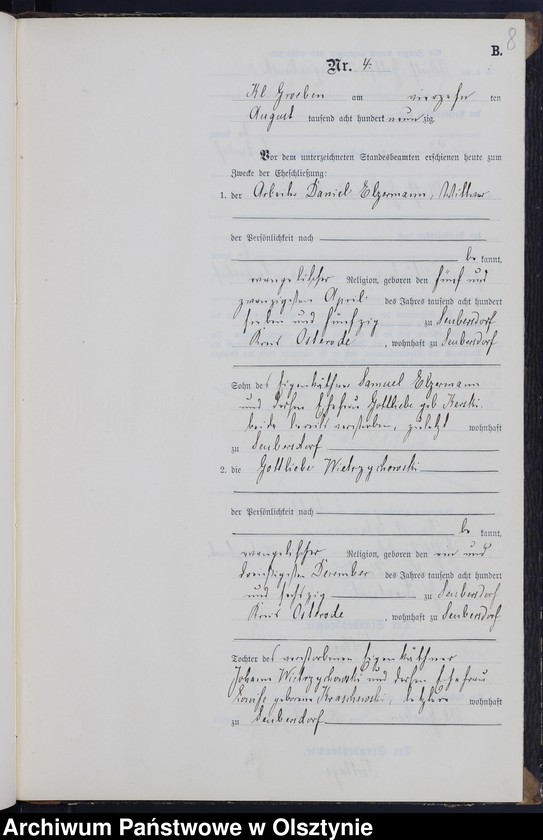 8
B.
Nr. 4.
Kl Groeben am vierzehn ten
August tausend acht hundert neun zig.
Vor dem unterzeichneten Standesbeamten erschienen heute zum
Zwecke der Eheschließung:
1. der Arbeiter Daniel Elzermann, Wittwer
der Persönlichkeit nach
be kannt,
evangelischer Religion, geboren den fünf und
zwanzigsten April des Jahres tausend acht hundert
sieben und fünfzig zu Seubersdorf
Kreis Osterode, wohnhaft zu Seubersdorf
Sohn des Eigenkäthner Samuel Elzermann
und dessen Ehefrau Gottliebe geb Kerski.
beide bereits verstorben, zuletzt wohnhaft
zu Seubersdorf
2. die Gottliebe Wietrzychowski
der Persönlichkeit nach
be kannt,
evangelischer Religion, geboren den ein und
dreißigsten December des Jahres tausend acht hundert
und sechszig zu Seubersdorf
Kreis Osterode, wohnhaft zu Seubersdorf
Tochter des verstorbenen Eigenkäthner
Johann Wietrzychowski und dessen Ehefrau
Louise geborene Kraschewski, letztere wohnhaft
zu Seubersdorf
Archiwum Państwowe w Olsztynie